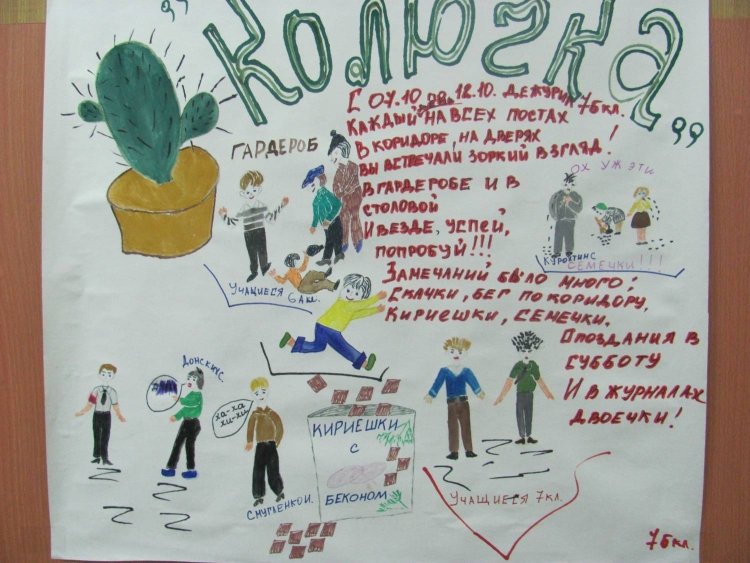 "Колючка"
С 07.10 по 12.10. дежурил 7б кл.
Каждый на всех постах
В коридоре, на дверях
Вы встречали зоркий взгляд!
В гардеробе и в
столовой
И везде, успей,
попробуй!!!
Замечаний было много;
Скачки, бег по коридору,
Кириешки, семечки,
Опоздания в
субботу
И в журналах
двоечки!
Гардероб
Учащиеся 6а кл.
Ох уж эти
семечки!!!
Донскис
ха-ха
хи-хи
Смугленкой.
Кириешки
с
беконом
Учащиеся 7 кл.
7б кл.